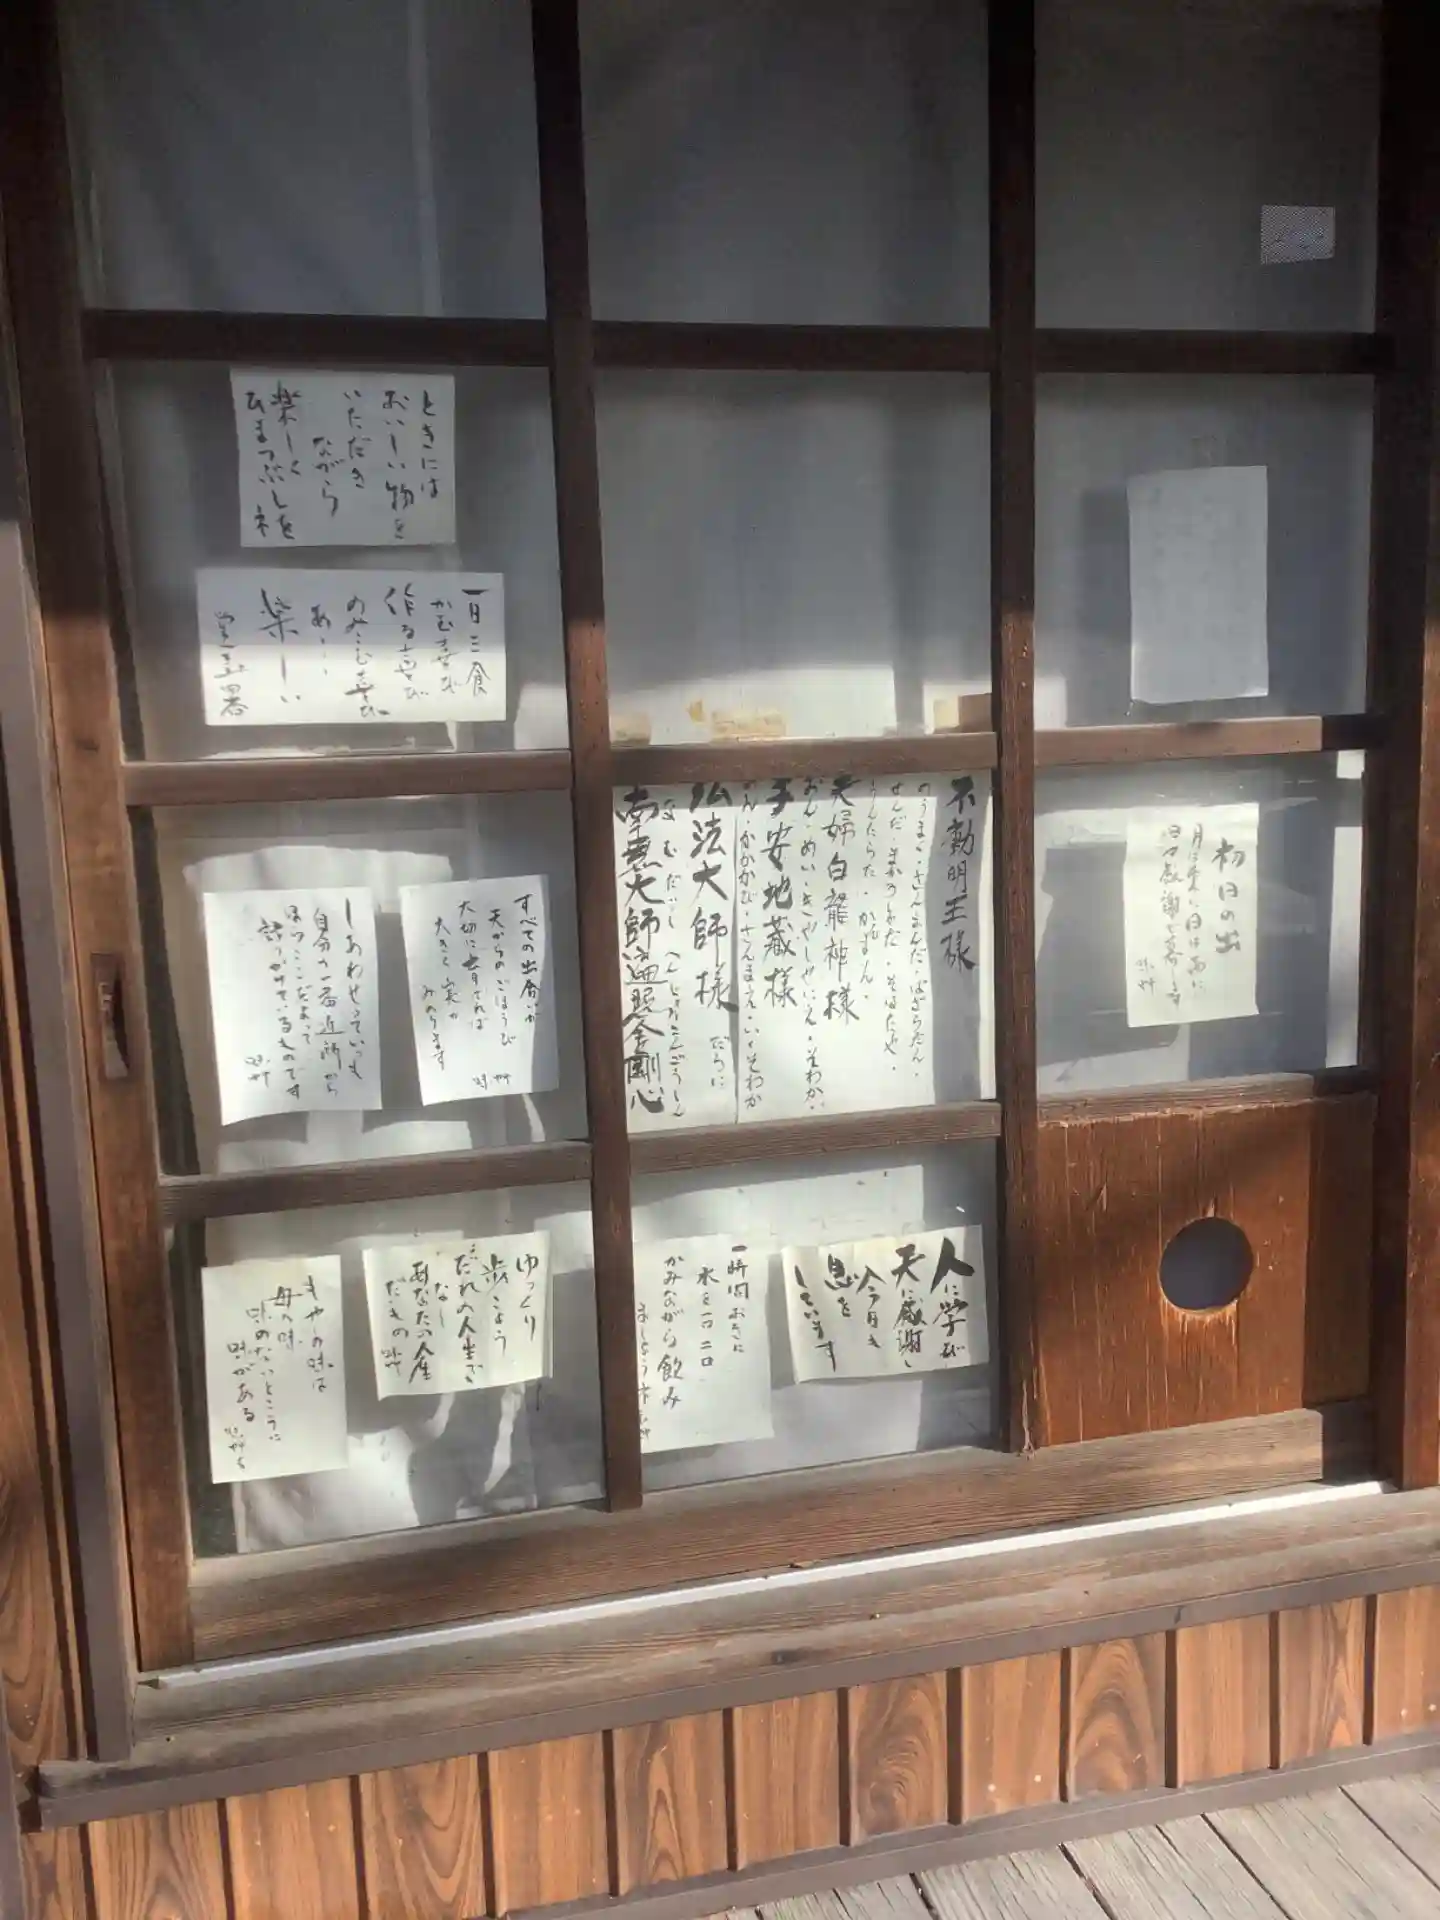 ときには
おいしい物を
いただき
ながら
楽しく
ひまつぶしを
一日三食
かむ喜び
作る喜び
のみこむ喜び
あ、、、
楽しい
不動明王様
のうまく・さんまんだ・ばざらだん・
せんだ・まかろしゃだ・そはたや・
うんたらた・かんまん・
夫婦白龍神様
おん・めい・きゃしゃにえ・そわか・
子安地蔵様
おん・かかかび・さんまえ・い・そわか
弘法大師様
なむだいし へんじょうこんごうしん
南無大師遍照金剛心
初日の出
すべての出会いが
天からのごほうび
大切に育てれば
大きく実が
みのります
味艸
しあわせっていつも
自分の一番近所から
ほっ、ここだよって
語りかけているものです
味艸
人に学び
天に感謝し
今日も
息を
しています
一時間おきに
水を一口二口
かみながら飲み
ましょう
ゆっくり
歩こう
だれの人生で
なし
あなたの人生
だもの
もやしの味は
母の味
味のないところに
味がある
味艸